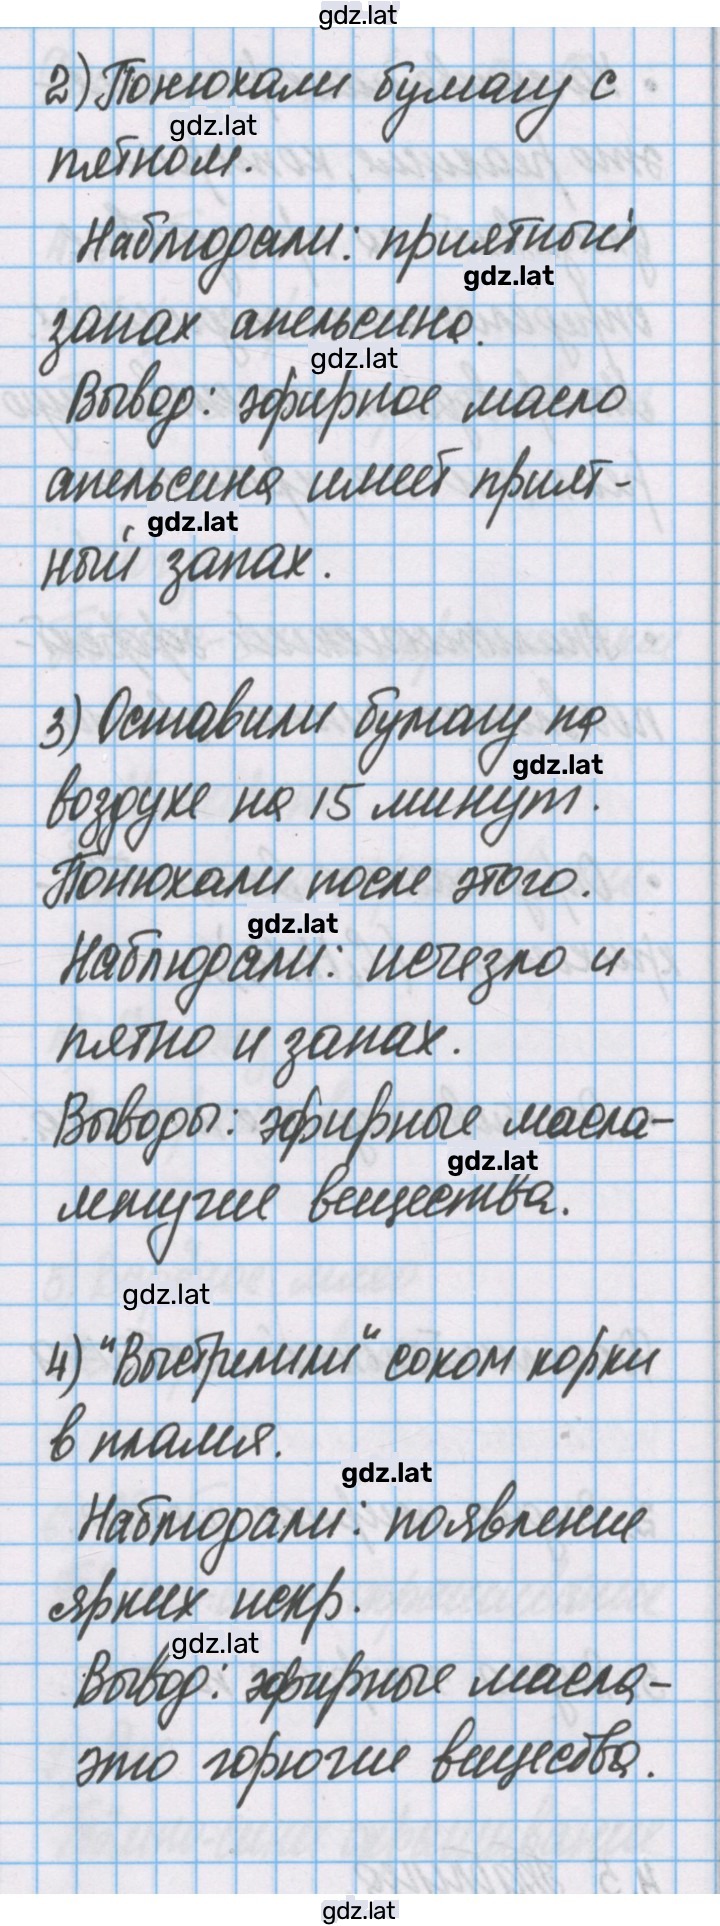 gdz.lat
2) Понюхали бумагу с
gdz.lat
пятном.
Наблюдали: приятный
gdz.lat
запах апельсина.
gdz.lat
Вывод: эфирное масло
апельсина имеет прият-
gdz.lat
ный запах.
3) Оставили бумагу на
gdz.lat
воздухе на 15 минут.
Понюхали после этого.
gdz.lat
Наблюдали: исчезло и
пятно и запах.
Выводы: эфирные масла-
gdz.lat
летучие вещества.
gdz.lat
4) "Выстрелили" соком корки
в пламя.
gdz.lat
Наблюдали: появление
ярких искр.
gdz.lat
Вывод: эфирные масла-
это горючие вещества.
gdz.lat